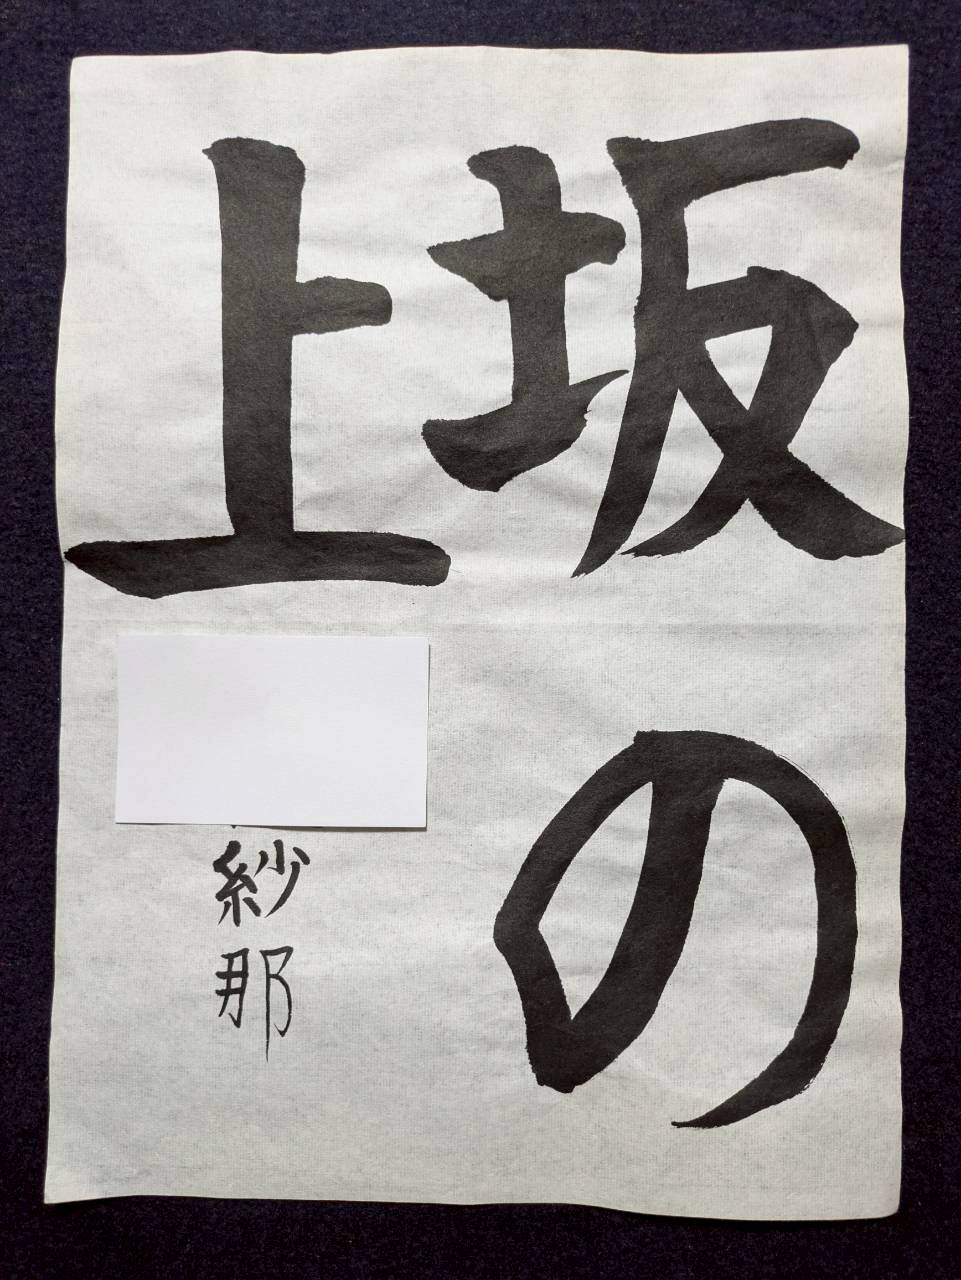 坂の
上
紗那